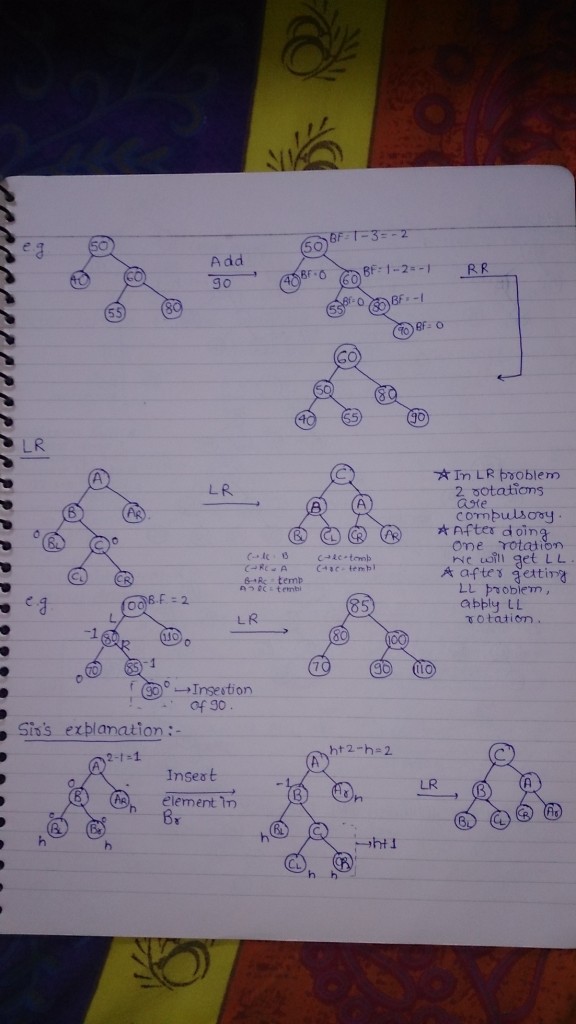 e.g
50
40
60
55
80
Add
90
50 BF=1-3=-2
40 BF=0
60 BF=1-2=-1
55 BF=0
80 BF=-1
90 BF=0
RR
60
50
80
40
55
90
LR
A
B
AR
0 BL
C 0
CL
CR
LR
C
B
A
BL
CL
CR
AR
C→LC = B
C→RC = A
B→RC = temb
☆ In LR problem
2 rotations
are
compulsory.
☆ After doing
one rotation
we will get LL.
☆ after getting
LL problem,
apply LL
rotation.
e.g.
100 B.F = 2
L
-1 80
110 0
R
0 70
85 -1
90 0
→Insertion
of 90.
LR
85
80
100
70
90
110
Sir's explanation :-
A 2-1=1
0 B
0 AR h
0 BL h
0 BR h
Insert
element in
Br
A h+2-h=2
-1 B
AR h
BL h
C
CL h
CR h
→h+1
LR
C
B
A
BL
CL
CR
AR